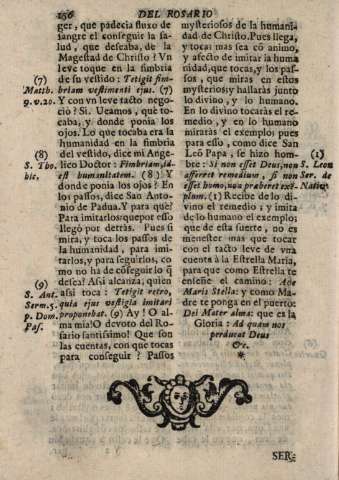 196 DEL ROSARIO
ger, que padecia fluxo de
sangre el conseguir la sa-
lud, que deseaba, de la
Magestad de Christo! Vn
leve toque en la fimbria
(7) de su vestido: Tetigit fim-
Matth. briam vestimenti ejus. (7)
9. v. 20. Y con vn leve tacto nego-
ciò? Si. Veamos, què to-
caba, y donde ponia los
ojos. Lo que tocaba era la
humanidad en la fimbria
(8) del vestido, dice mi Ange-
S. Tho. lico Doctor: Fimbriam, id
hic. est humanitatem. (8) Y
donde ponia los ojos? En
los passos, dice San Anto-
nio de Padua. Y para què?
Para imitarlos: quepor esso
llegò por detràs. Pues si
mira, y toca los passos de
la humanidad, para imi-
tarlos, y para seguirlos, co-
mo no ha de cõseguir lo q̃
(9) desea? Assi alcanza, quien
S. Ant. assi toca: Tetigit retro,
Serm. 5. quia ejus vestigia imitari
p. Dom. proponebat. (9) Ay! O al-
Pas. ma mia! O devoto del Ro-
sario santissimo! Que son
las cuentas, con que tocas
para conseguir? Passos
mysteriosos de la humani-
dad de Christo. Pues llega,
y toca: mas sea cõ animo,
y afecto de imitar la huma
nidad, que tocas, y los pas-
sos, que miras en estos
mysterios; y hallaràs junto
lo divino, y lo humano.
En lo divino tocaràs el re-
medio; y en lo humano
miraràs el exemplo: pues
para esso, como dice San
Leõ Papa, se hizo hom-
bre: Si non esset Deus, non (1)
afferret remedium, si non S. Leon
esset homo, non praberet exẽ- Ser. de
plum. (1) Recibe de lo di- Nativ.
vino el remedio; y imita
de lo humano el exemplo:
que de esta suerte, no es
menester mas que tocar
con el tacto leve de vna
cuenta à la Estrella Maria,
para que como Estrella te
enseñe el camino: Ave
Maris Stella: y como Ma-
dre te ponga en el puerto:
Dei Mater alma: que es la
Gloria: Ad quam nos
perducat Deus
&c.
*
SER-